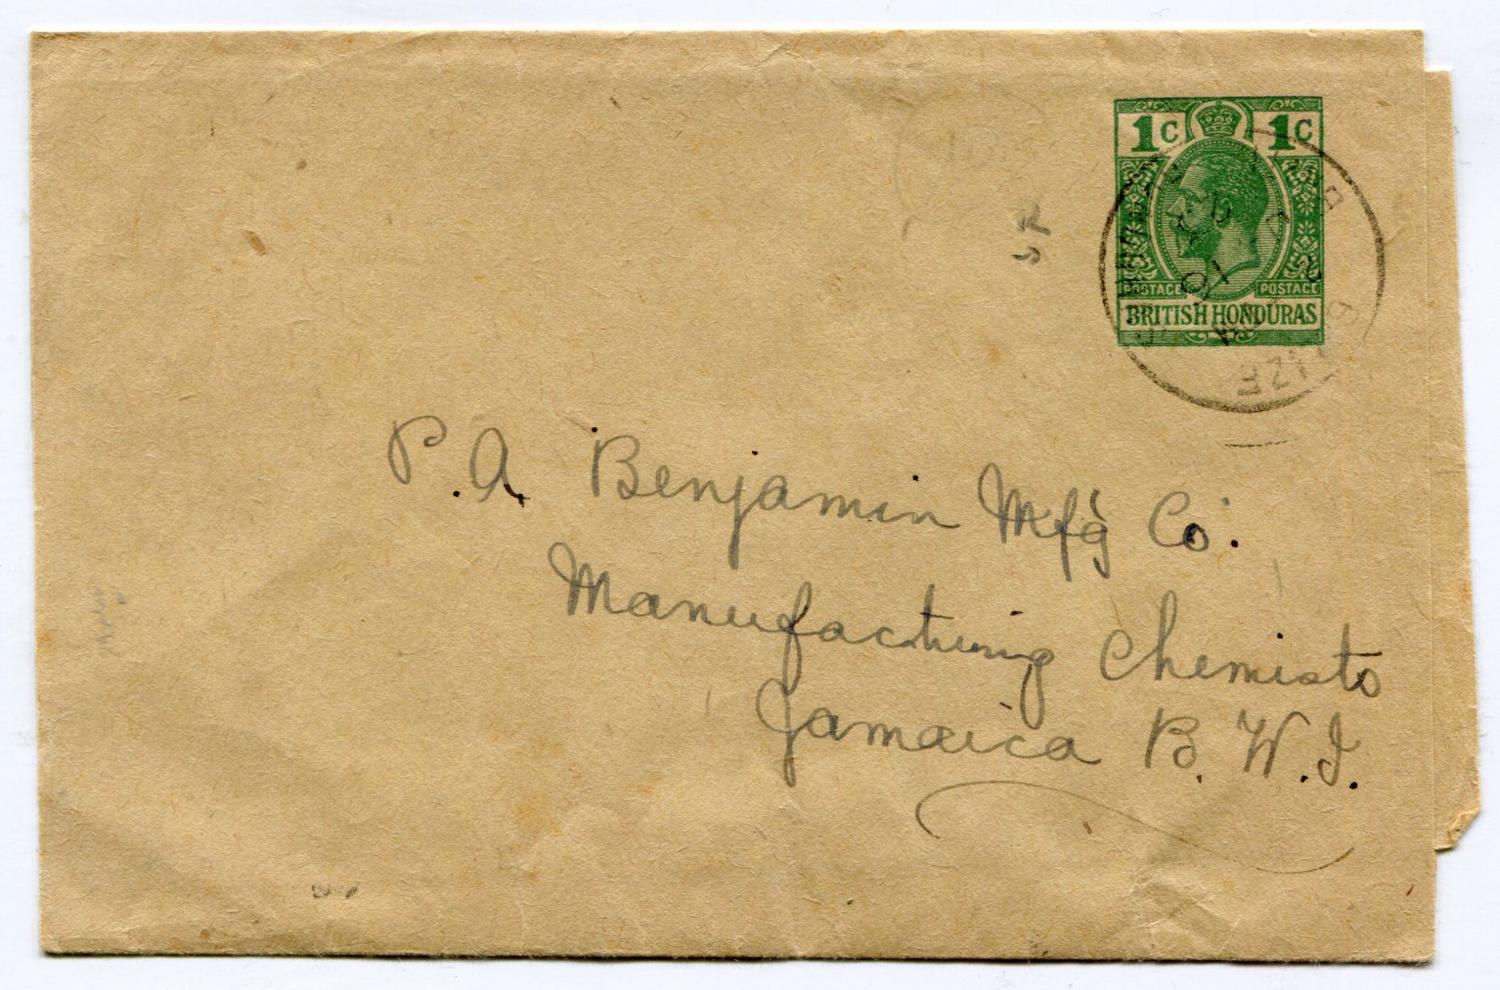 1C 1C
POSTAGE POSTAGE
BRITISH HONDURAS
P. A. Benjamin Mf'g Co.
Manufacturing Chemists
Jamaica B. W. I.